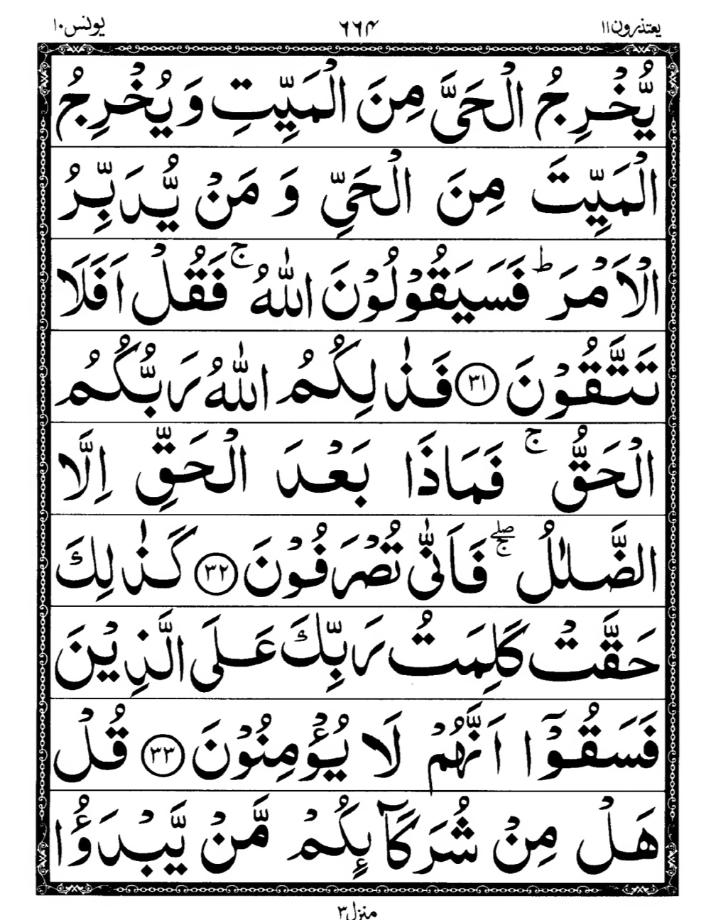 یعتذرون ۱۱ ۶۶۴ یونس ۱۰
يُّخْرِجُ الْحَىَّ مِنَ الْمَيِّتِ وَيُخْرِجُ
الْمَيِّتَ مِنَ الْحَىِّ وَ مَنْ يُّدَبِّرُ
الْاَمْرَ ؕ فَسَيَقُوْلُوْنَ اللّٰهُ ۚ فَقُلْ اَفَلَا
تَتَّقُوْنَ ﴿۳۱﴾ فَذٰلِكُمُ اللّٰهُ رَبُّكُمُ
الْحَقُّ ۚ فَمَاذَا بَعْدَ الْحَقِّ اِلَّا
الضَّلٰلُ ۚۖ فَاَنّٰى تُصْرَفُوْنَ ﴿۳۲﴾ كَذٰلِكَ
حَقَّتْ كَلِمَتُ رَبِّكَ عَلَى الَّذِيْنَ
فَسَقُوْۤا اَنَّهُمْ لَا يُؤْمِنُوْنَ ﴿۳۳﴾ قُلْ
هَلْ مِنْ شُرَكَآئِكُمْ مَّنْ يَّبْدَؤُا
منزل ۳